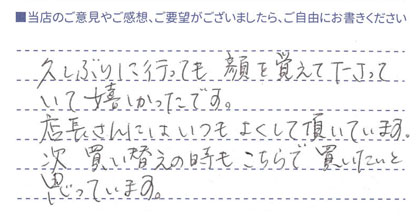 ■当店のご意見やご感想、ご要望がございましたら、ご自由にお書きください
久しぶりに行っても 顔を覚えて下さって
いて嬉しかったです。
店長さんにはいつもよくして頂いています。
次 買い替えの時も こちらで 買いたいと
思っています。